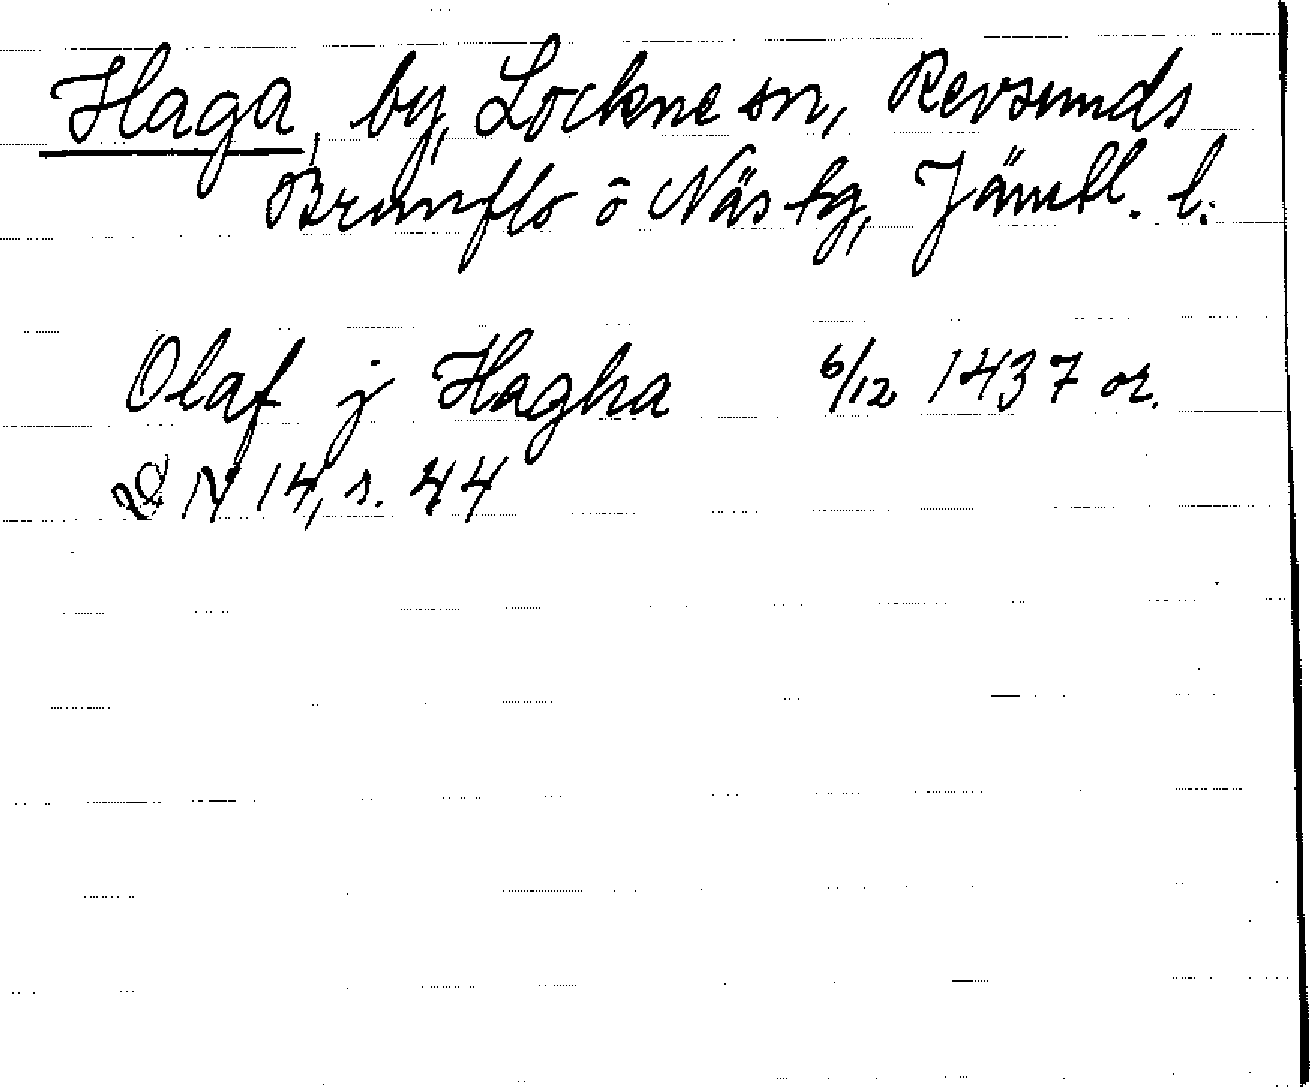 Haga, by, Lockne sn, Revsunds
Brunflo o Näs tg, Jämtl. l.
Olaf j Hagha 6/12 1437 or.
DN 14, s. 44